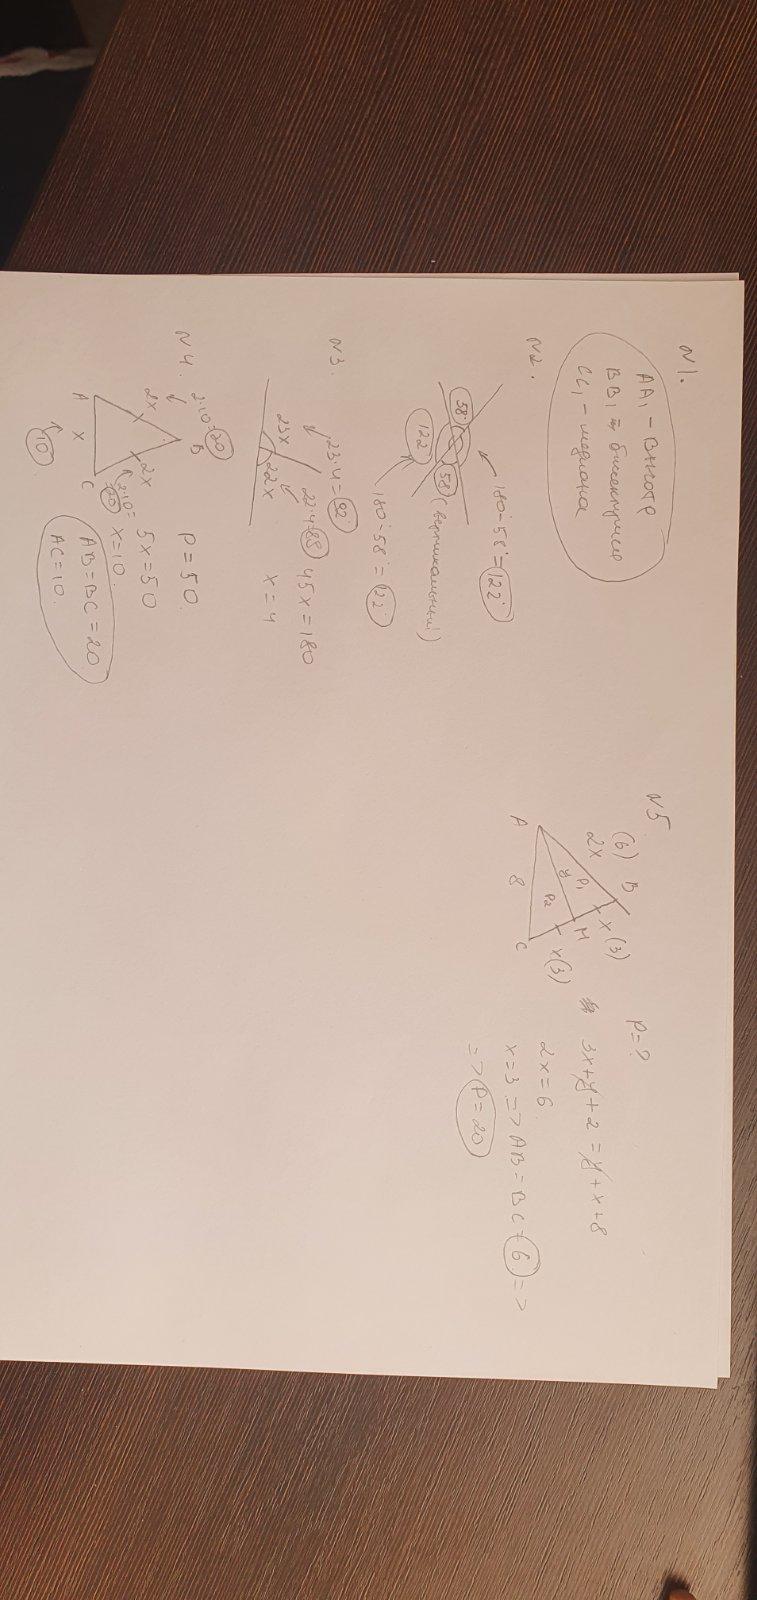 N1.
AA₁ - высотр
BB₁ = биссектрисе
CC₁ - медиана
N2.
58°
122°
58° (вертикальный)
180°-58°=122°
180°-58°=122°
N3.
23x
22x
23·4=92°
22·4=88
45x=180
x=4
N4.
2·10=20
B
2x
2x
A
x
C
10
2·10=
20
P=50.
5x=50
x=10.
AB=BC=20.
AC=10.
N5
(6)
2x
B
x(3)
P₁
y
M
P₂
x(3)
A
8
C
P=?
3x+y+2=y+x+8
2x=6
x=3 => AB=BC=6 =>
=> P=20